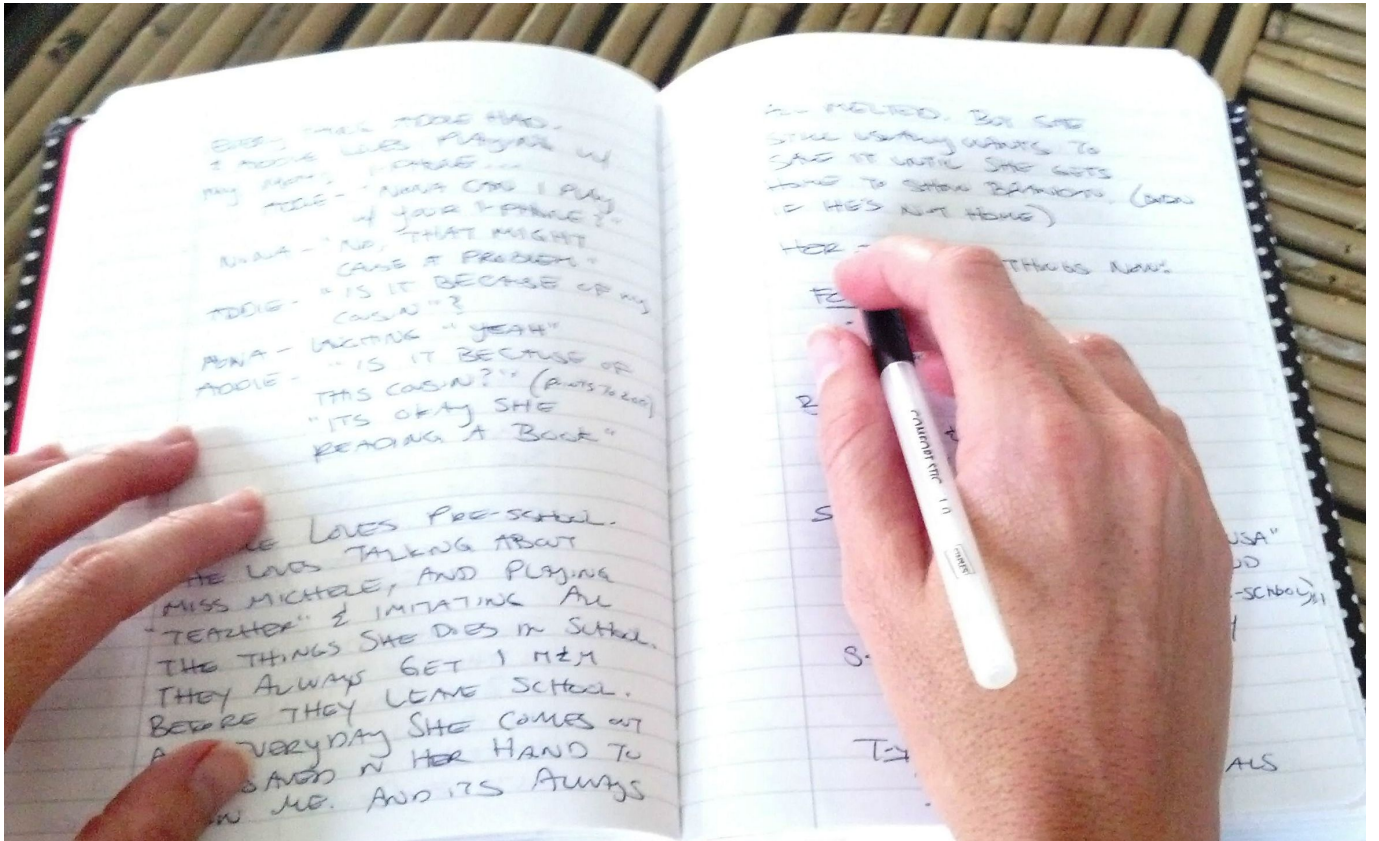 ADDIE HAD.
& ADDIE LOVES PLAYING W/
MY MOM'S I-PHONE...
ADDIE- "NANA CAN I PLAY
W/ YOUR I-PHONE?"
NANA - "NO, THAT MIGHT
CAUSE A PROBLEM"
ADDIE- "IS IT BECAUSE OF MY
COUSIN"?
NANA - "YEAH"
ADDIE- "IS IT BECAUSE OF
THIS COUSIN?" (POINTS TO ZOE)
"ITS OKAY SHE
READING A BOOK"
LOVES PRE-SCHOOL.
HE LOVES TALKING ABOUT
MISS MICHELE, AND PLAYING
"TEACHER" & IMITATING ALL
THE THINGS SHE DOES IN SCHOOL.
THEY ALWAYS GET 1 M&M
BEFORE THEY LEAVE SCHOOL.
EVERYDAY SHE COMES OUT
SAVED IN HER HAND TO
ME. AND ITS ALWAYS
ALL MELTED. BUT SHE
STILL USUALLY WANTS TO
SAVE IT UNTIL SHE GETS
HOME TO SHOW BRANDON. (EVEN
IF HE'S NOT HOME)
HER THINGS NOW:
USA"
-SCHOOL)
COMFORT STIC 1.0